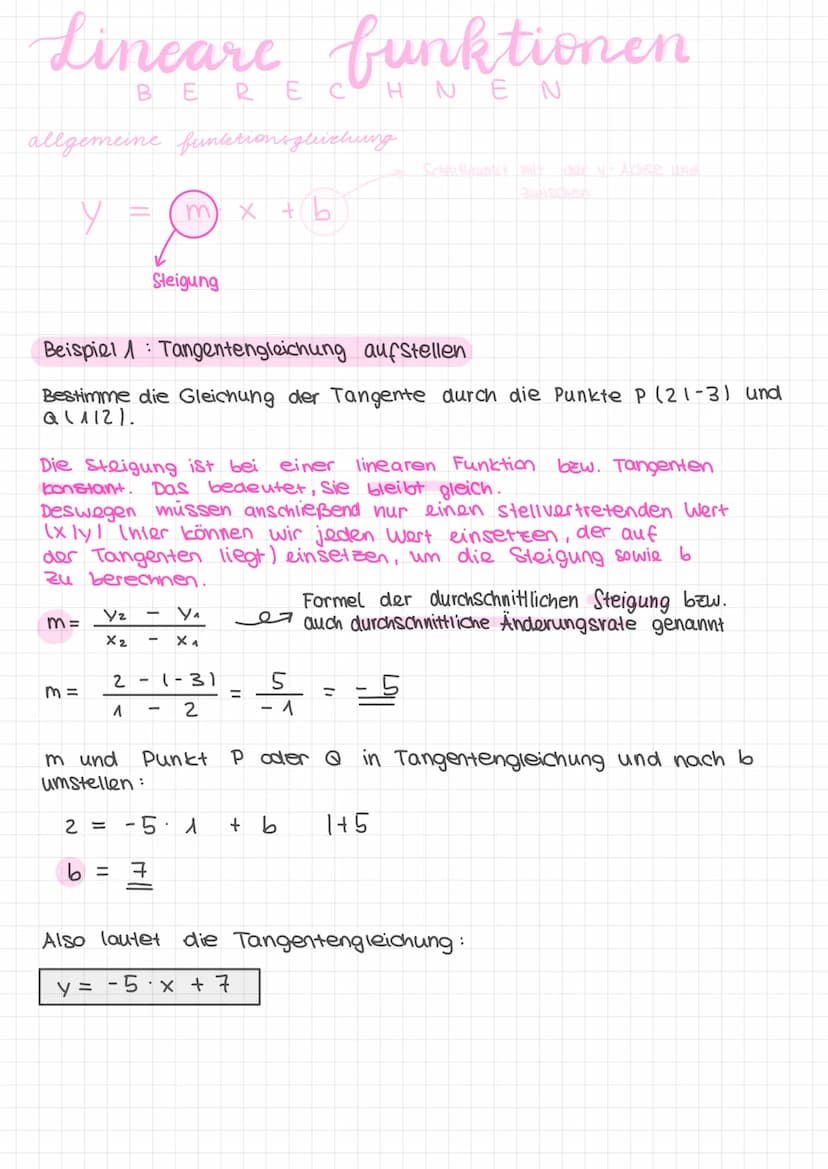 Lineare Funktionen
BERECHNEN
allgemeine Funktionsgleichung
Schnittpunkt mit der y-Achse und
y = m x + b
Steigung
Beispiel 1 : Tangentengleichung aufstellen
Bestimme die Gleichung der Tangente durch die Punkte P (2|-3) und
Q (1|2).
Die Steigung ist bei einer linearen Funktion bzw. Tangenten
konstant. Das bedeutet, sie bleibt gleich.
Deswegen müssen anschießend nur einen stellvertretenden Wert
(x|y) (hier können wir jeden Wert einsetzen, der auf
der Tangenten liegt) einsetzen, um die Steigung sowie b
zu berechnen.
Formel der durchschnittlichen Steigung bzw.
m = y₂ - y₁ / x₂ - x₁ auch durchschnittliche Änderungsrate genannt
m = 2 - (-3) / 1 - 2 = 5 / -1 = -5
m und Punkt P oder Q in Tangentengleichung und nach b
umstellen :
2 = -5 · 1 + b |+5
b = 7
Also lautet die Tangentengleichung :
y = -5 · x + 7